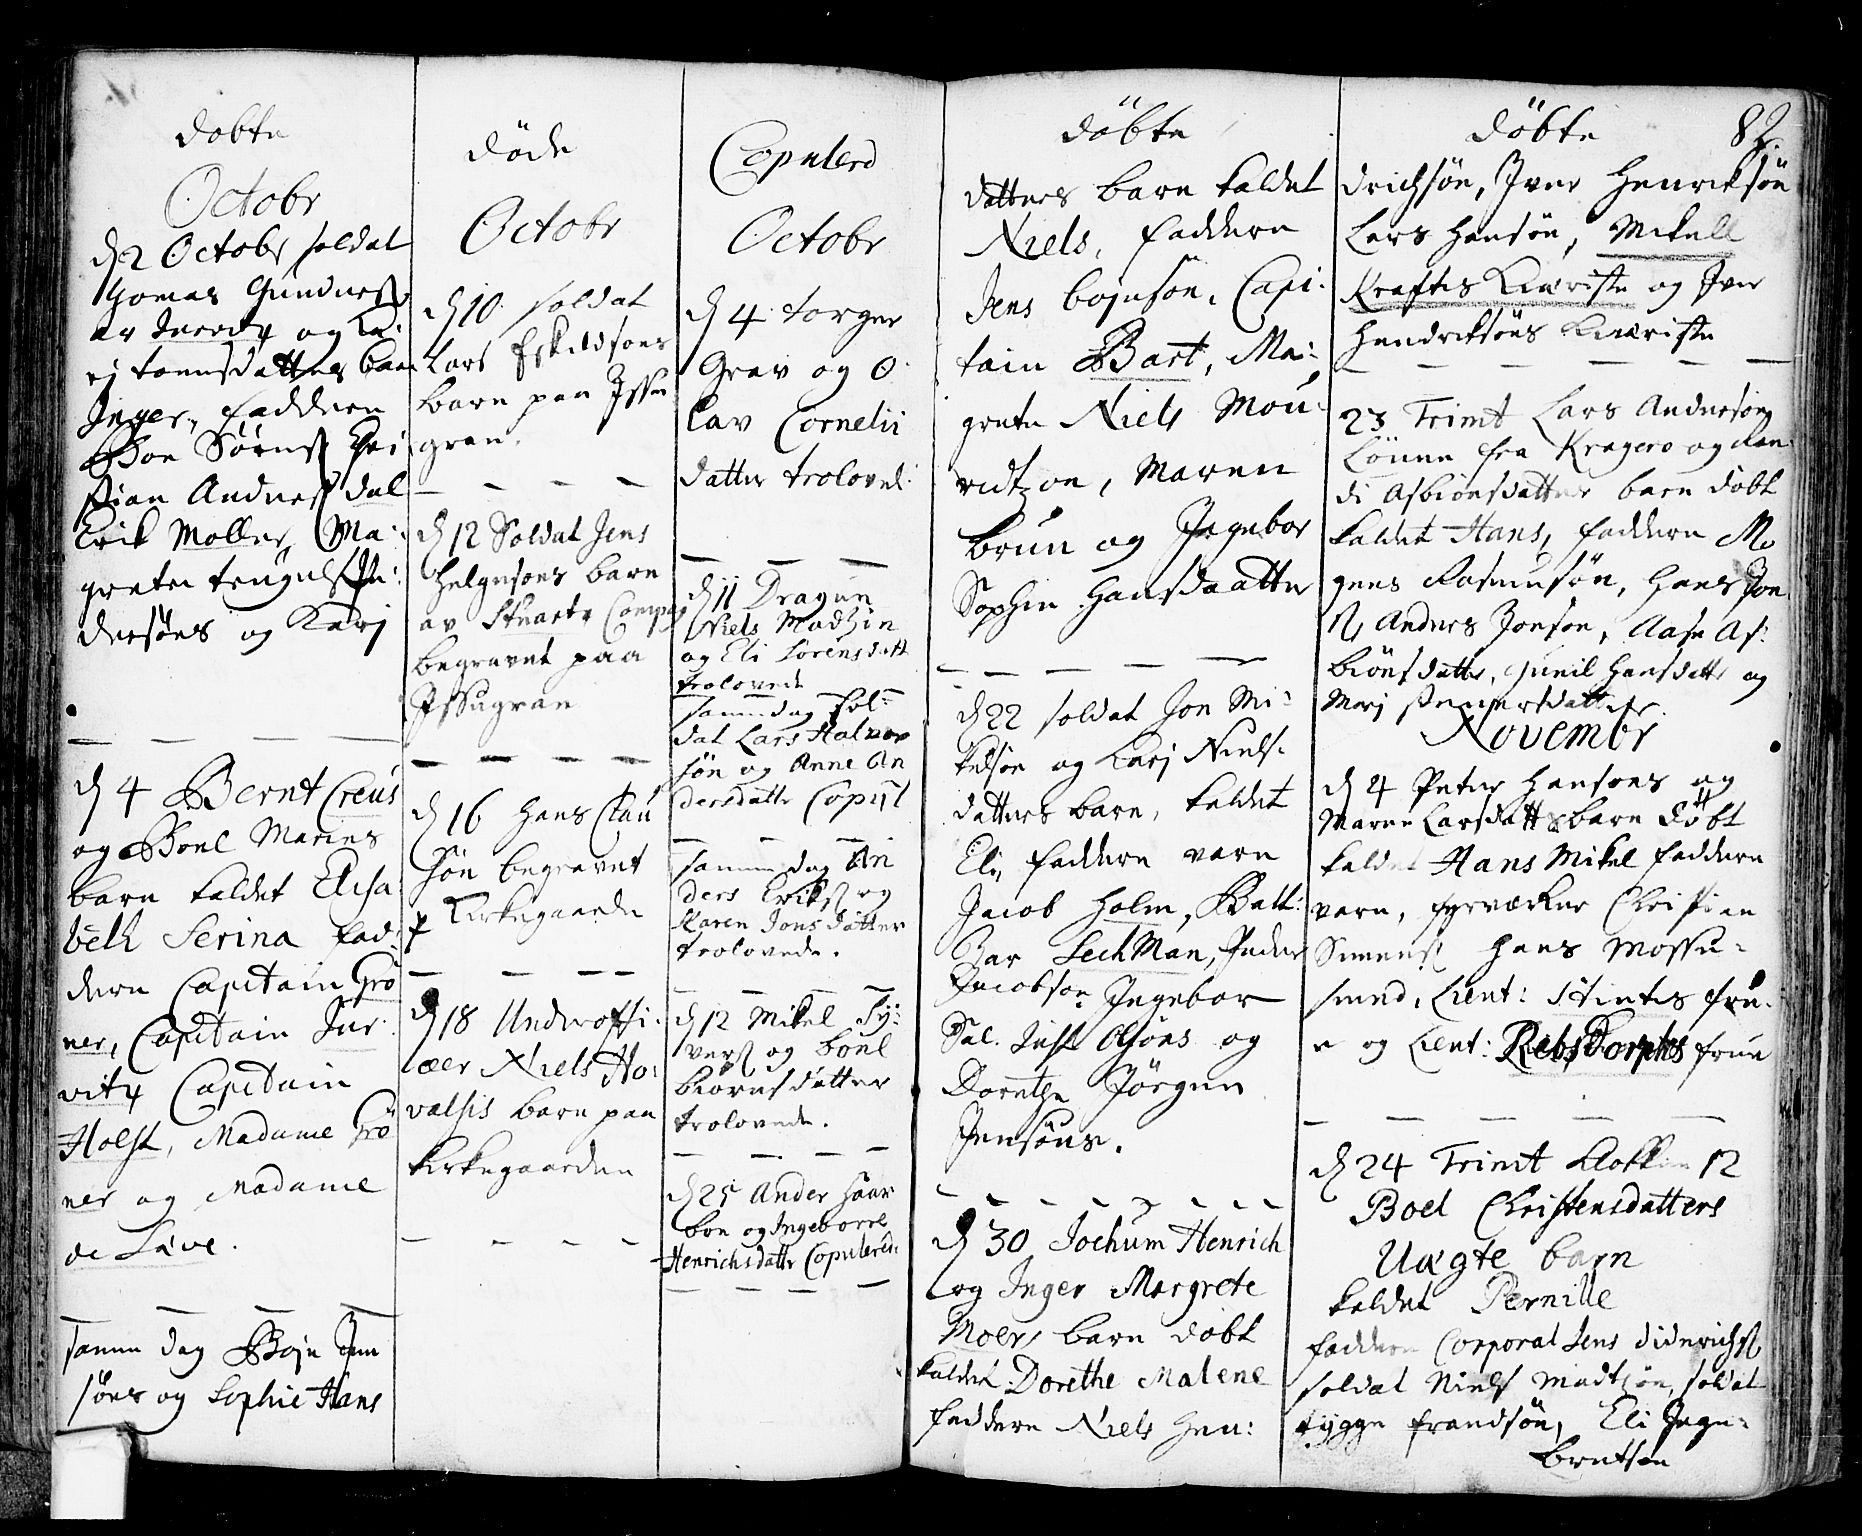 döbte
Octobr
d 2 Octobr soldat
Thomas Gunders
og Ka:
rj toensdatters barn
Inger, faddern
Boe Sörens Chri
stian Anders dal
Erik Moller, Ma:
grete Pe:
dersöns og Karj
d 4 Bernt Creus
og Boel Maries
barn kaldet Elisa
beth Serina fad:
dern Capitain Grö
ner, Capitain Jur
vitz Capitain
Holst, Madame Grö
ner og Madame
de Löve.
samme dag Boje Jen
söns og Sophie Hans
döde
Octobr
d 10 soldat
Lars Eskildsöns
barn paa Issu
gran.
d 12 Soldat Jens
Helgesöns barn
av Stuarts Compag
begravet paa
Issugran
d 16 Hans Clau
sön begravet
p Kirkegaarde
d 18 Underoffi:
ceer Niels Ho:
valsis barn paa
kirkegaarden
Copulerd
Octobr
d 4 torger
Grav og O
lav Cornelii
datter trolovel:
d 11 Dragun
Niels Madtzin
og Eli Sörensdatt
trolovede
samme dag sol:
dat Lars Halvor
sön og Anne An
dersdattr Copul
samme dag An
ders Eriks og
Karen Jons datter
trolovede.
d 12 Mikel Sy:
vers og boel
biörnsdatter
trolovede.
d 25 Ander Haar
bon og Ingeborre
Henrichsdattr Copulered:
döbte
datters barn kaldet
Niels, faddern
Jens Bojesön, Capi:
tain Bart, Ma:
grete Niels Mou:
ridtzon, Maren
brun og Ingebor
Sophie Hansdaatter
d 22 soldat Jon Mi:
kelsön og Karj Niels:
datters barn, kaldet
Eli, faddern varn
Jacob Holm, Balt:
zar Lechman, Peder
Jacobson Ingebor
Sal. Olsöns og
Dorethe Jörgen
Jensöns.
d 30 Jochum Henrich
og Inger Margrete
Moers barn döbt
kaldet Dorethe Malene
faddern Niels Hen:
döbte 82.
drichsön, Iver Henriksön
Lars Hansön, Mikell
Krafts Kiæriste og Iver
Hendriksöns Kiæriste
23 Trinit Lars Andersön
Lönne fra Kragerö og Ran
di Asbiönsdatters barn döbt
kaldet Hans, faddern Mo
gens Rasmusön, Hans Jon
S, Anders Jonsön, Aase As:
biönsdatter, Gunil Hansdattr og
Marj datter.
Novembr
d 4 Peter Hansöns og
Maren Larsdatters barn döbt
kaldet Hans Mikel faddern
varn, fyrværker Christian
Simens Hans Mosse-
smed, Lieut: Stints fru-
e og Lieut: Rebsdorphs frue
d 24 Trinit Klokken 12
Boel Christensdatters
Uægte barn
kaldet Pernille
faddern Corporal Jens Diderichs
soldat Niels Madtsön, soldat
tygge frandsön, Eli Inge-
bretsön